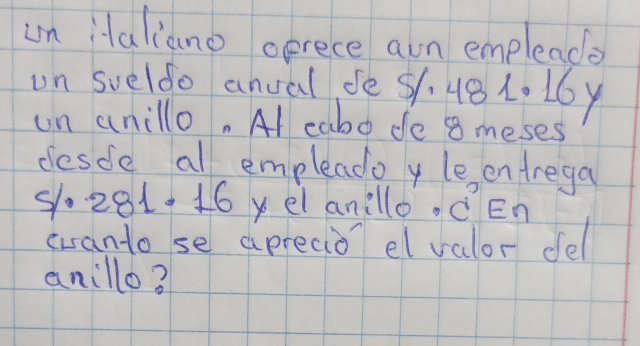 un italiano ofrece aun empleado
un sueldo anual de S/. 481.16 y
un anillo. Al cabo de 8 meses
desde al empleado y le entrega
S/. 281.16 y el anillo. ¿ En
cuanto se apreció el valor del
anillo?